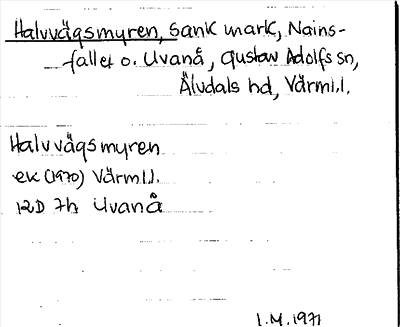 Halvvägsmyren, sank mark, Nains-
fallet o. Uvanå, Gustav Adolfs sn,
Älvdals hd, Värml.l.
Halvvägsmyren
ek (1970) Värml.l.
12D 7h Uvanå
I.M. 1971